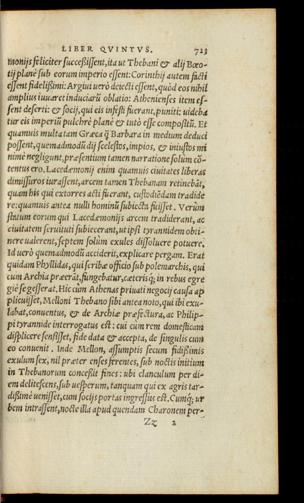 LIBER QVINTVS. 723
monijs feliciter successissent, ita ut Thebani & alij Bœo-
tij planè sub eorum imperio essent: Corinthij autem facti
essent fidelissimi: Argiui uerò deiecti essent, quòd eos nihil
amplius iuuaret induciarũ oblatio: Athenienses item es-
sent deserti: & socij, qui eis infesti fuerant, puniti: uideba
tur eis imperiũ pulchrè planè & tutò esse compositũ. Et
quamuis multa tam Græca q̃ Barbara in medium deduci
possent, quemadmodũ dij scelestos, impios, & iniustos mi
nimè negligunt, præsentium tamen narratione solùm cõ-
tentus ero. Lacedæmonij enim quamuis ciuitates liberas
dimissuros iurassent, arcem tamen Thebanam retinebãt,
quam his qui extorres acti fuerant, custodiẽdam tradide
re: quamuis antea nulli hominũ subiecta fuisset. Verùm
statum eorum qui Lacedæmonijs arcem tradiderant, ac
ciuitatem seruituti subiecerant, ut ipsi tyrannidem obti-
nere ualerent, septem solùm exules dissoluere potuere.
Id uerò quemadmodũ acciderit, explicare pergam. Erat
quidam Phyllidas, qui scribæ officio sub polemarchis, qui
cum Archia præerãt, fungebatur, cæterisq; in rebus egre
giè se gesserat. Hic cùm Athenas priuati negocij causa ap
plicuisset, Melloni Thebano sibi antea noto, qui ibi exu-
labat, conuentus, & de Archiæ præfectura, ac Philip-
pi tyrannide interrogatus est: cui cùm rem domesticam
displicere sensisset, fide data & accepta, de singulis cum
eo conuenit. Inde Mellon, assumptis secum fidissimis
exulum sex, nil præter enses ferentes, sub noctis initium
in Thebanorum concessit fines: ubi clanculum per di-
em delitescens, sub uesperum, tanquam qui ex agris tar-
dissimè uenisset, cum socijs portas ingressus est. Cumq; ur
bem intrassent, nocte illa apud quendam Charonem per-
Zz 2